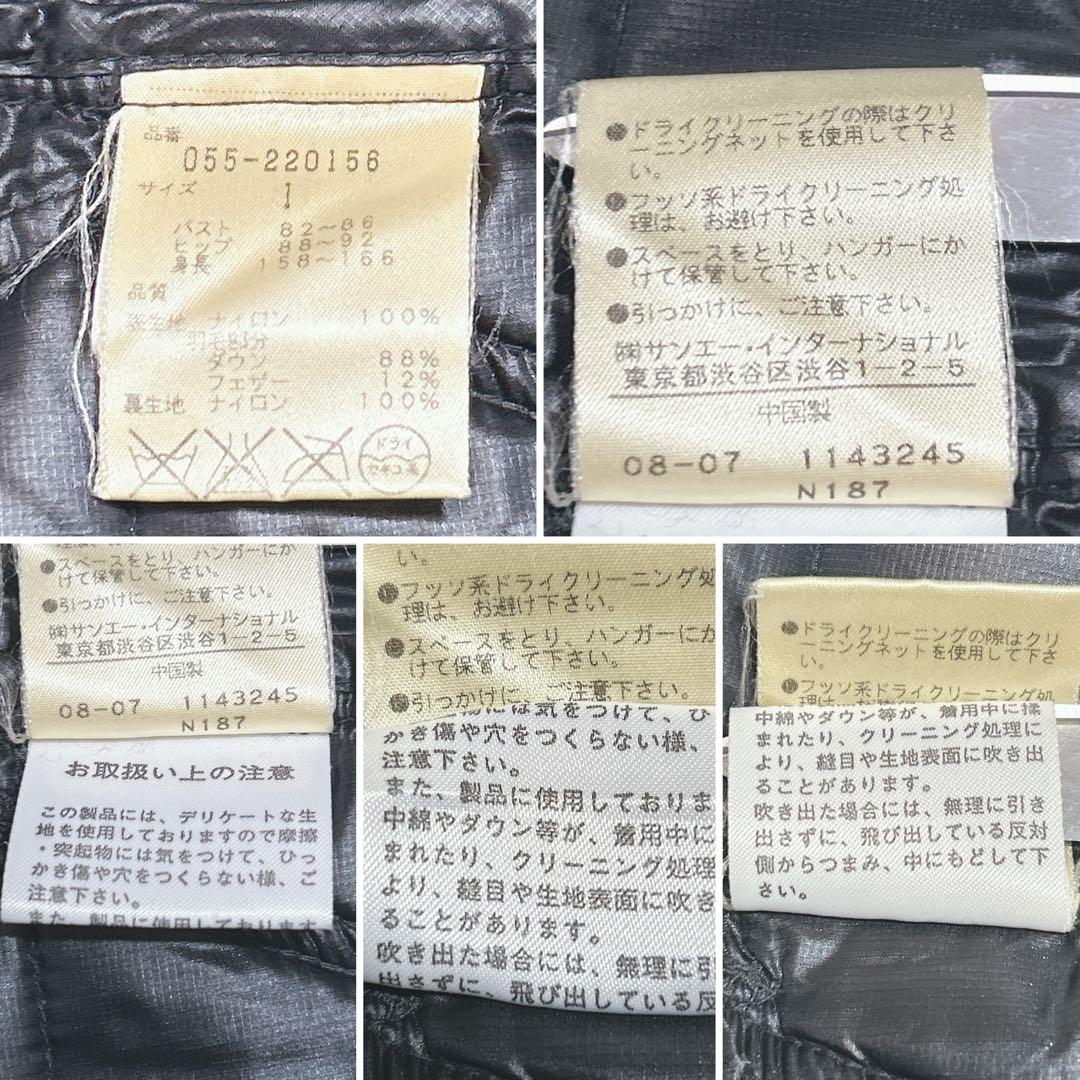 品番
055-220156
サイズ
1
バスト 82～86
ヒップ 88～92
身長 158～166
品質
表生地 ナイロン 100%
羽毛部分
ダウン 88%
フェザー 12%
裏生地 ナイロン 100%
ドライ
セキユ系
●ドライクリーニングの際はクリ
ーニングネットを使用して下さ
い。
●フッソ系ドライクリーニング処
理は、お避け下さい。
●スペースをとり、ハンガーにか
けて保管して下さい。
●引つかけに、ご注意下さい。
㈱サンエー・インターナショナル
東京都渋谷区渋谷1-2-5
中国製
08-07 1143245
N187
●スペースをとり、ハンガーにか
けて保管して下さい。
●引つかけに、ご注意下さい。
㈱サンエー・インターナショナル
東京都渋谷区渋谷1-2-5
中国製
08-07 1143245
N187
お取扱い上の注意
この製品には、デリケートな生
地を使用しておりますので摩擦
・突起物には気をつけて、ひっ
かき傷や穴をつくらない様、ご
注意下さい。
また、製品に使用しております
い。
●フッソ系ドライクリーニング処
理は、お避け下さい。
●スペースをとり、ハンガーにか
けて保管して下さい。
●引つかけに、ご注意下さい。
には気をつけて、ひ
かき傷や穴をつくらない様、
注意下さい。
また、製品に使用しておりま
中綿やダウン等が、着用中に
まれたり、クリーニング処理
より、縫目や生地表面に吹き
ることがあります。
吹き出た場合には、無理に引
出さずに、飛び出している反
●ドライクリーニングの際はクリ
ーニングネットを使用して下さ
い。
●フッソ系ドライクリーニング処
中綿やダウン等が、着用中に揉
まれたり、クリーニング処理に
より、縫目や生地表面に吹き出
ることがあります。
吹き出た場合には、無理に引き
出さずに、飛び出している反対
側からつまみ、中にもどして下
さい。